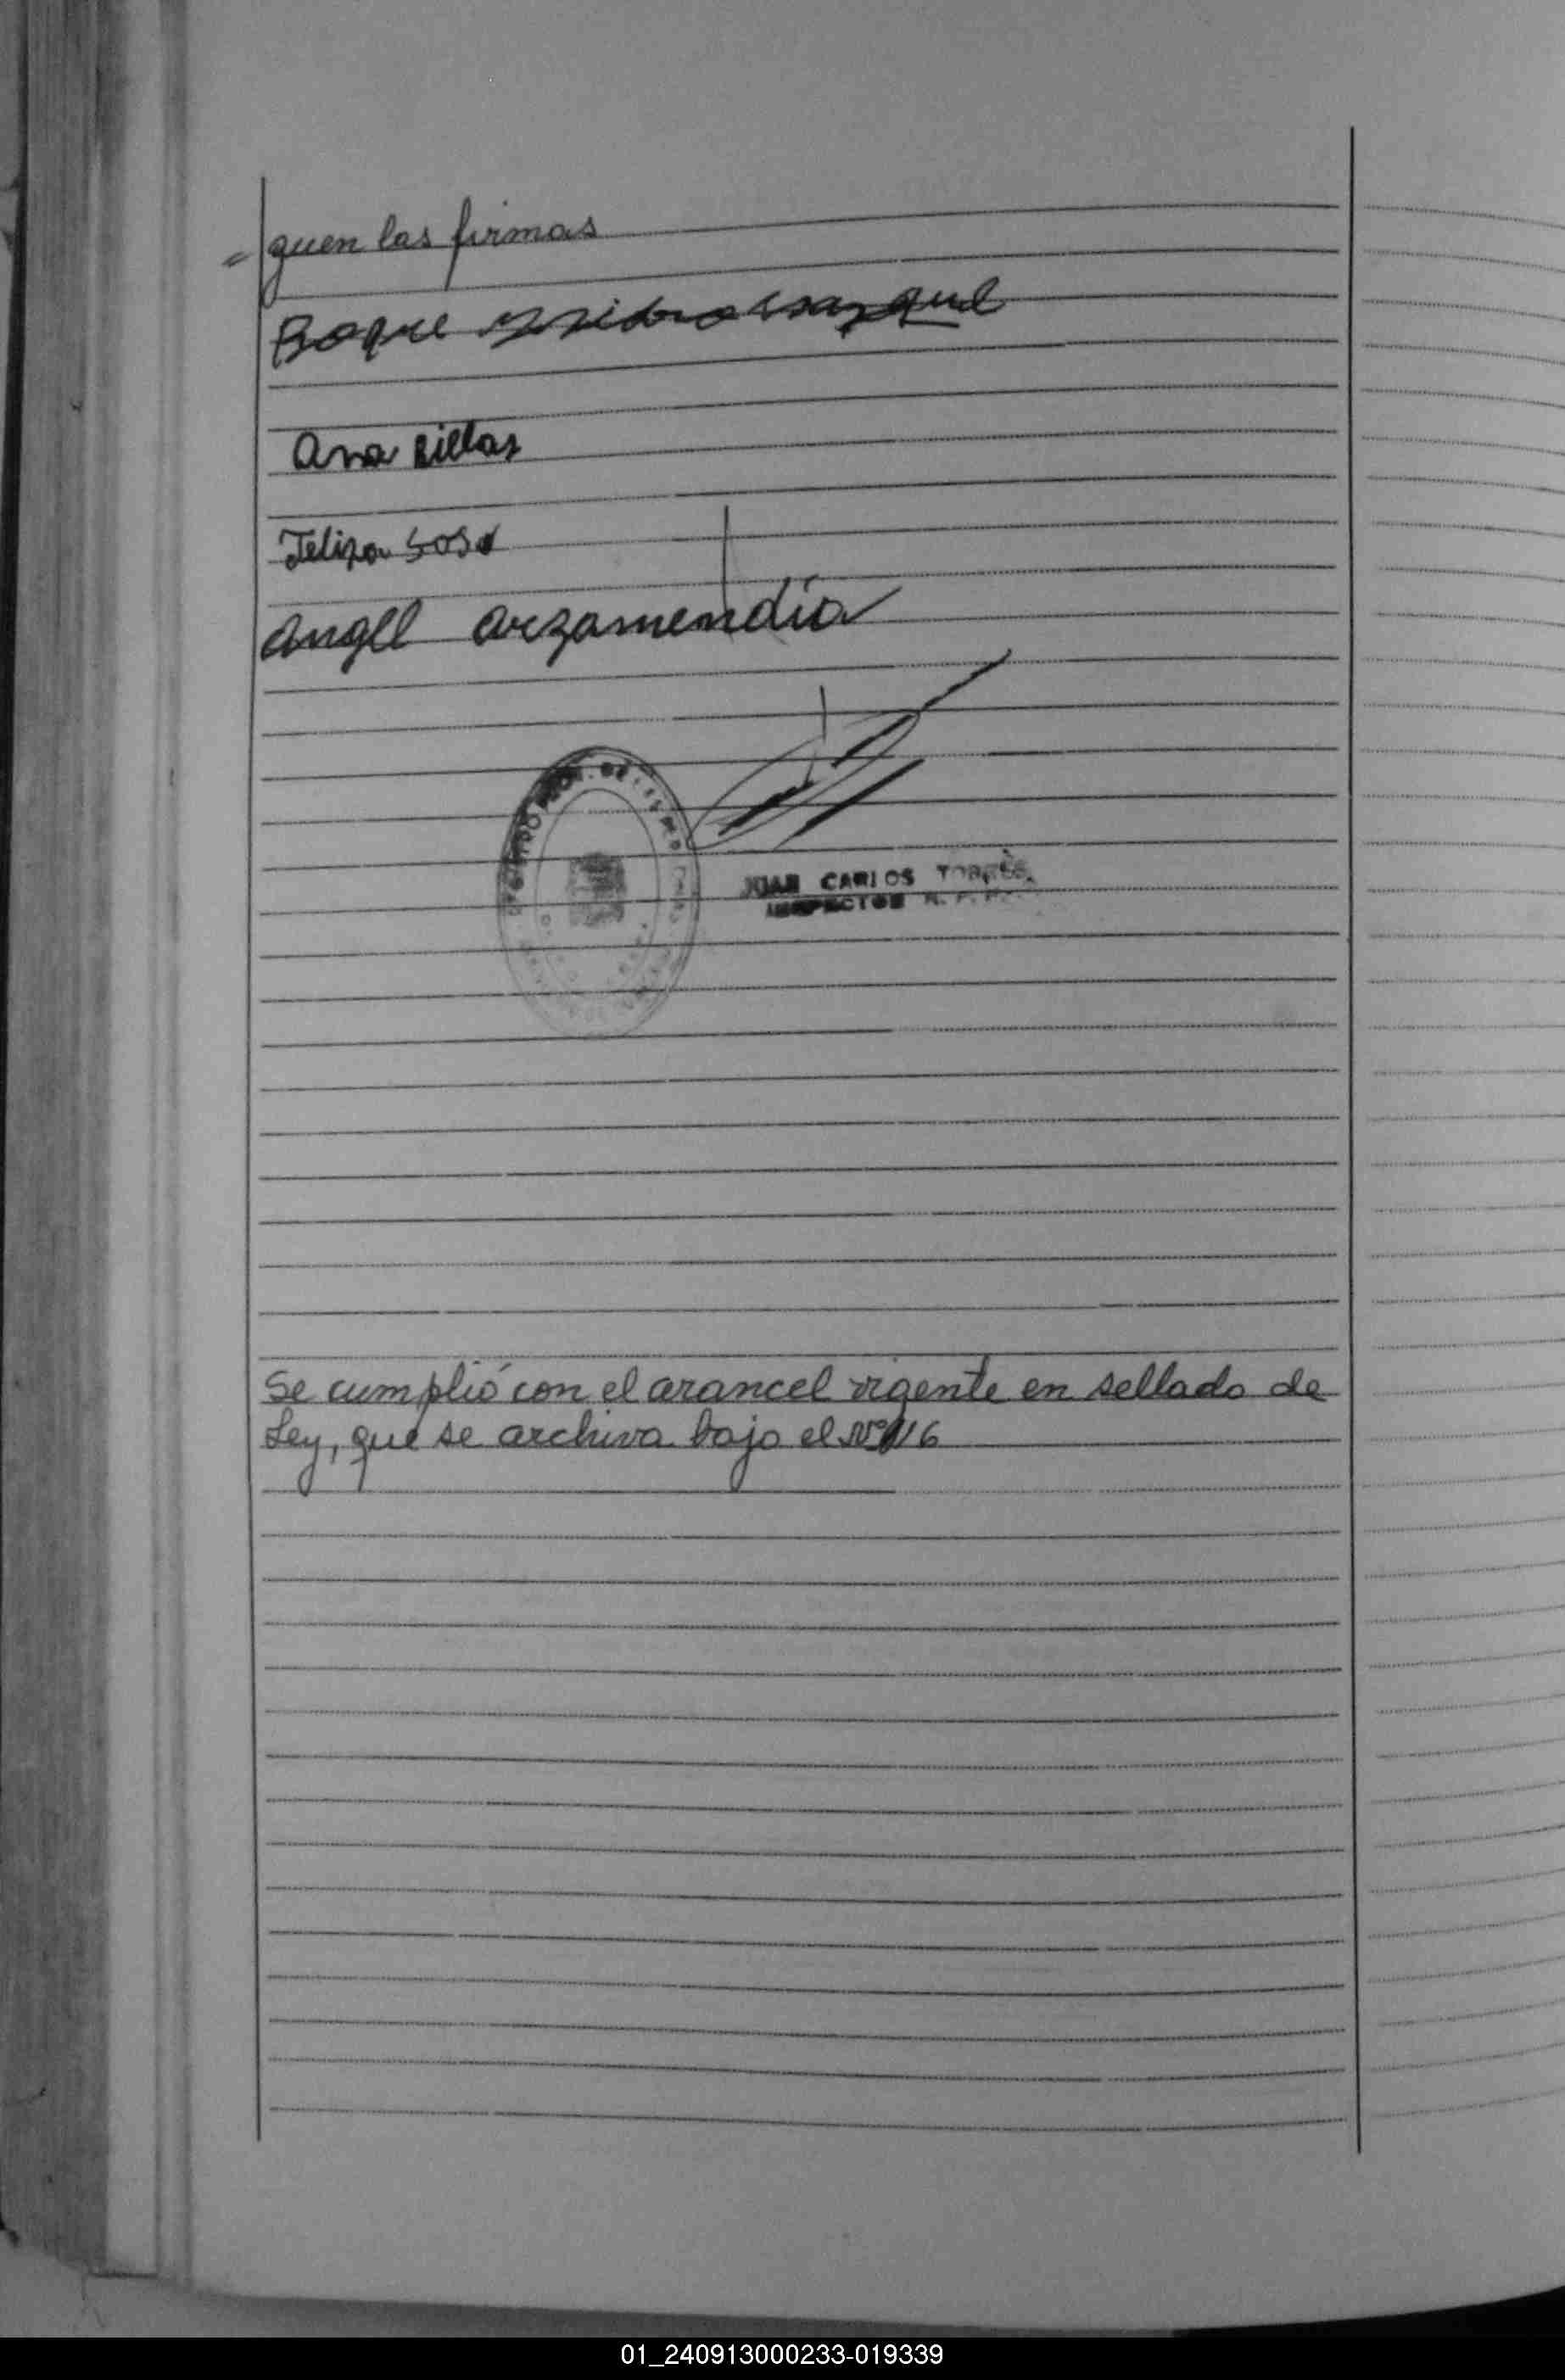 = guen las firmas
Roque
Ana Billar
Feliza Sosa
Angel Arzamendia
JUAN CARLOS TORRES
INSPECTOR R. P. P.
Se cumplió con el arancel vigente en sellado de
Ley, que se archiva bajo el Nº 116
01_240913000233-019339